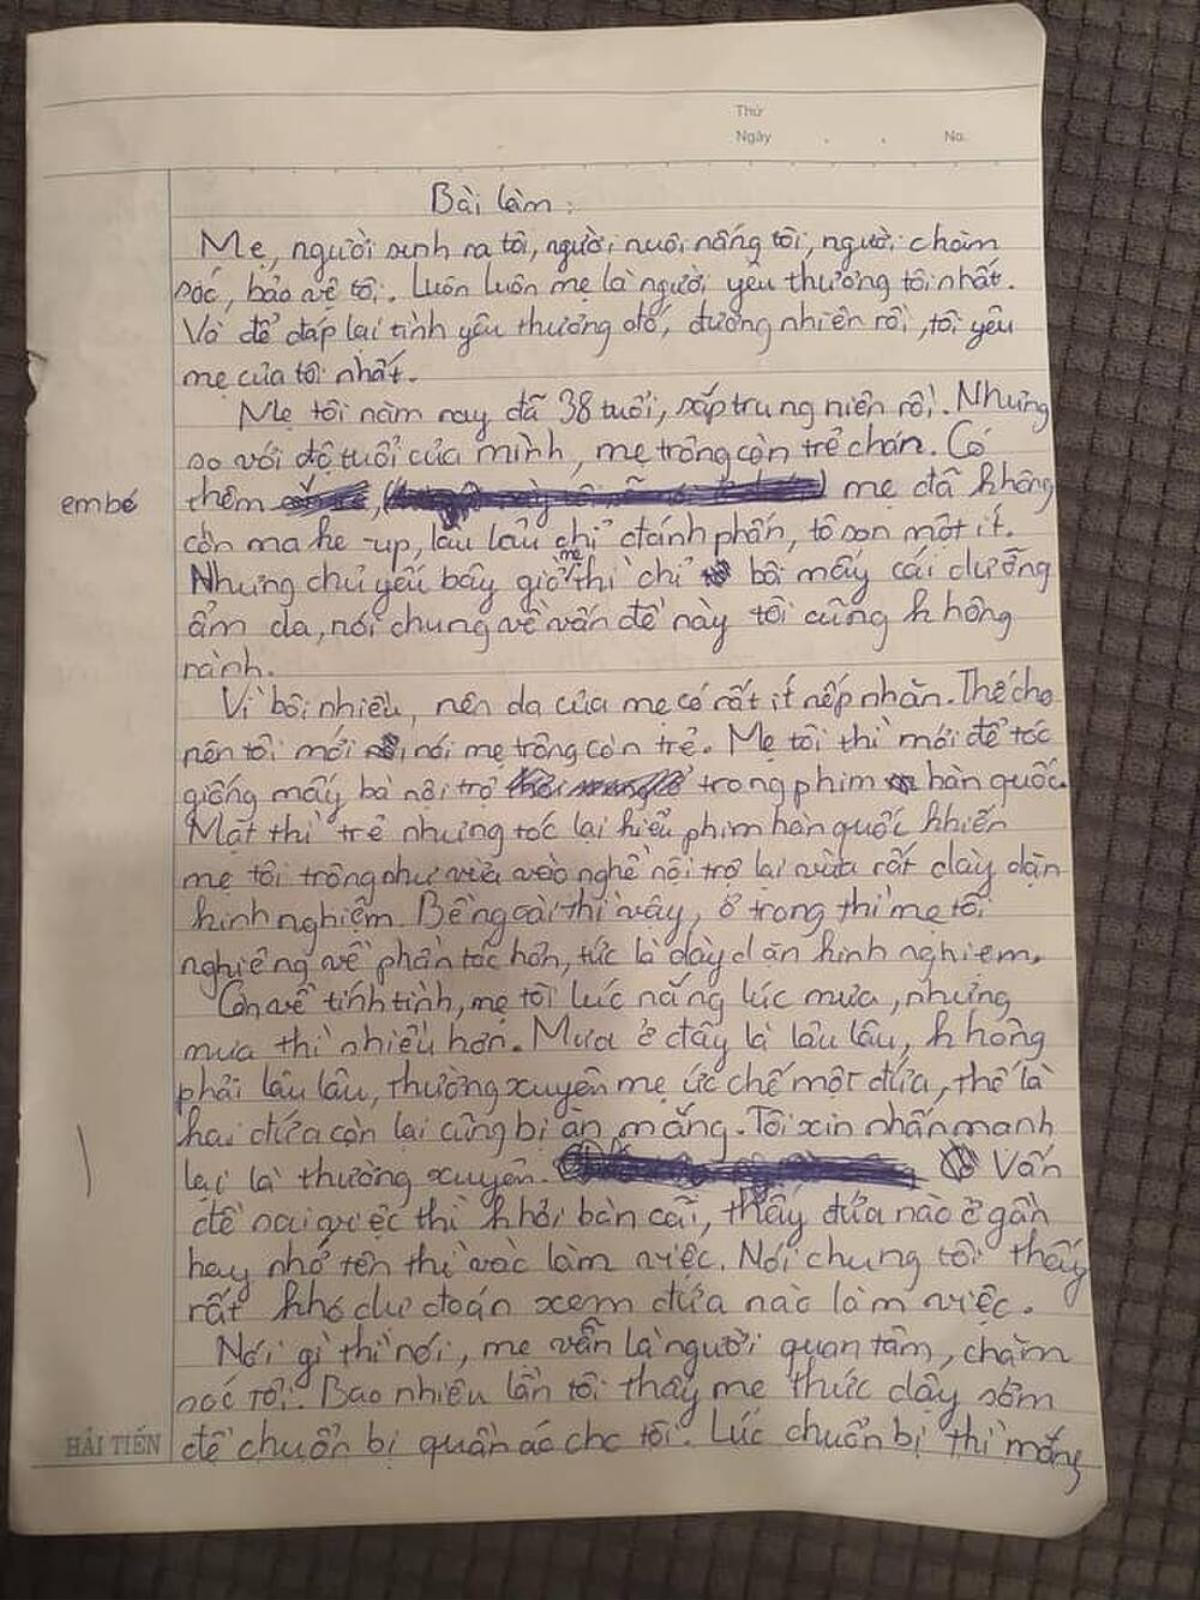 Thứ
Ngày . . No.
Bài làm:
Mẹ, người sinh ra tôi, người nuôi nấng tôi, người chăm
sóc, bảo vệ tôi. Luôn luôn mẹ là người yêu thương tôi nhất.
Và để đáp lại tình yêu thương đó, đương nhiên rồi, tôi yêu
mẹ của tôi nhất.
Mẹ tôi năm nay đã 38 tuổi, sắp trung niên rồi. Nhưng
so với độ tuổi của mình, mẹ trông còn trẻ chán. Có
embé thêm , mẹ đã không
còn make-up, lâu lâu chỉ đánh phấn, tô son một ít.
Nhưng chủ yếu bây giờ mẹ thì chỉ bôi mấy cái dưỡng
ẩm da, nói chung về vấn đề này tôi cũng không
rành.
Vì bôi nhiều, nên da của mẹ có rất ít nếp nhăn. Thế cho
nên tôi mới nói mẹ trông còn trẻ. Mẹ tôi thì mới để tóc
giống mấy bà nội trợ trong phim hàn quốc.
Mặt thì trẻ nhưng tóc lại kiểu phim hàn quốc khiến
mẹ tôi trông như vừa vào nghề nội trợ lại vừa rất dày dặn
kinh nghiệm. Bề ngoài thì vậy, ở trong thì mẹ tôi
nghiêng về phần tóc hơn, tức là dày dặn kinh nghiem.
Còn về tính tình, mẹ tôi lúc nắng lúc mưa, nhưng
mưa thì nhiều hơn. Mưa ở đây là lâu lâu, không
phải lâu lâu, thường xuyên mẹ ức chế một đứa, thế là
hai đứa còn lại cũng bị ăn mắng. Tôi xin nhấn mạnh
lại là thường xuyên. Vấn
đề sai việc thì khỏi bàn cãi, thấy đứa nào ở gần
hay nhớ tên thì vác làm việc. Nói chung tôi thấy
rất khó dự đoán xem đứa nào làm việc.
Nói gì thì nói, mẹ vẫn là người quan tâm, chăm
sóc tôi. Bao nhiêu lần tôi thấy mẹ thức dậy sớm
để chuẩn bị quần áo cho tôi. Lúc chuẩn bị thì mắng
HẢI TIẾN